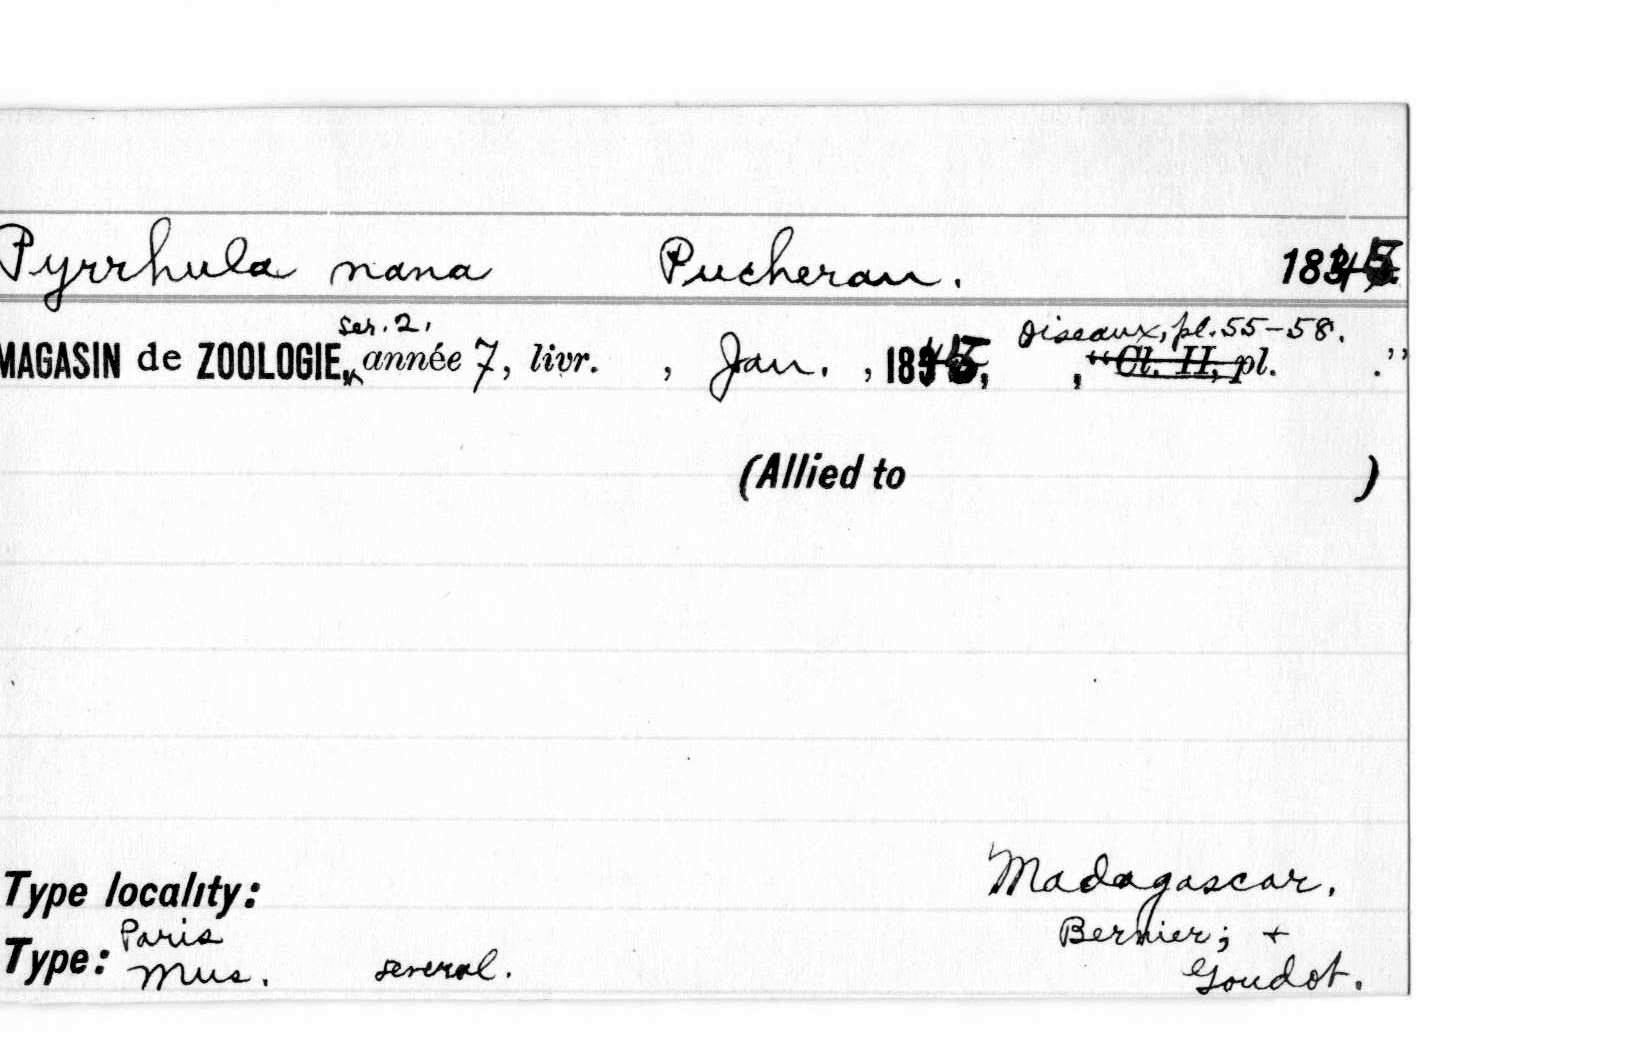 Pyrrhula nana Pucheran. 1845.
ser. 2, Oiseaux, pl. 55-58.
MAGASIN de ZOOLOGIE, année 7, livr. , Jan. , 1845, , "Cl. II, pl. ."
(Allied to )
Type locality: Madagascar.
Paris Bernier; +
Type: Mus. several. Goudot.